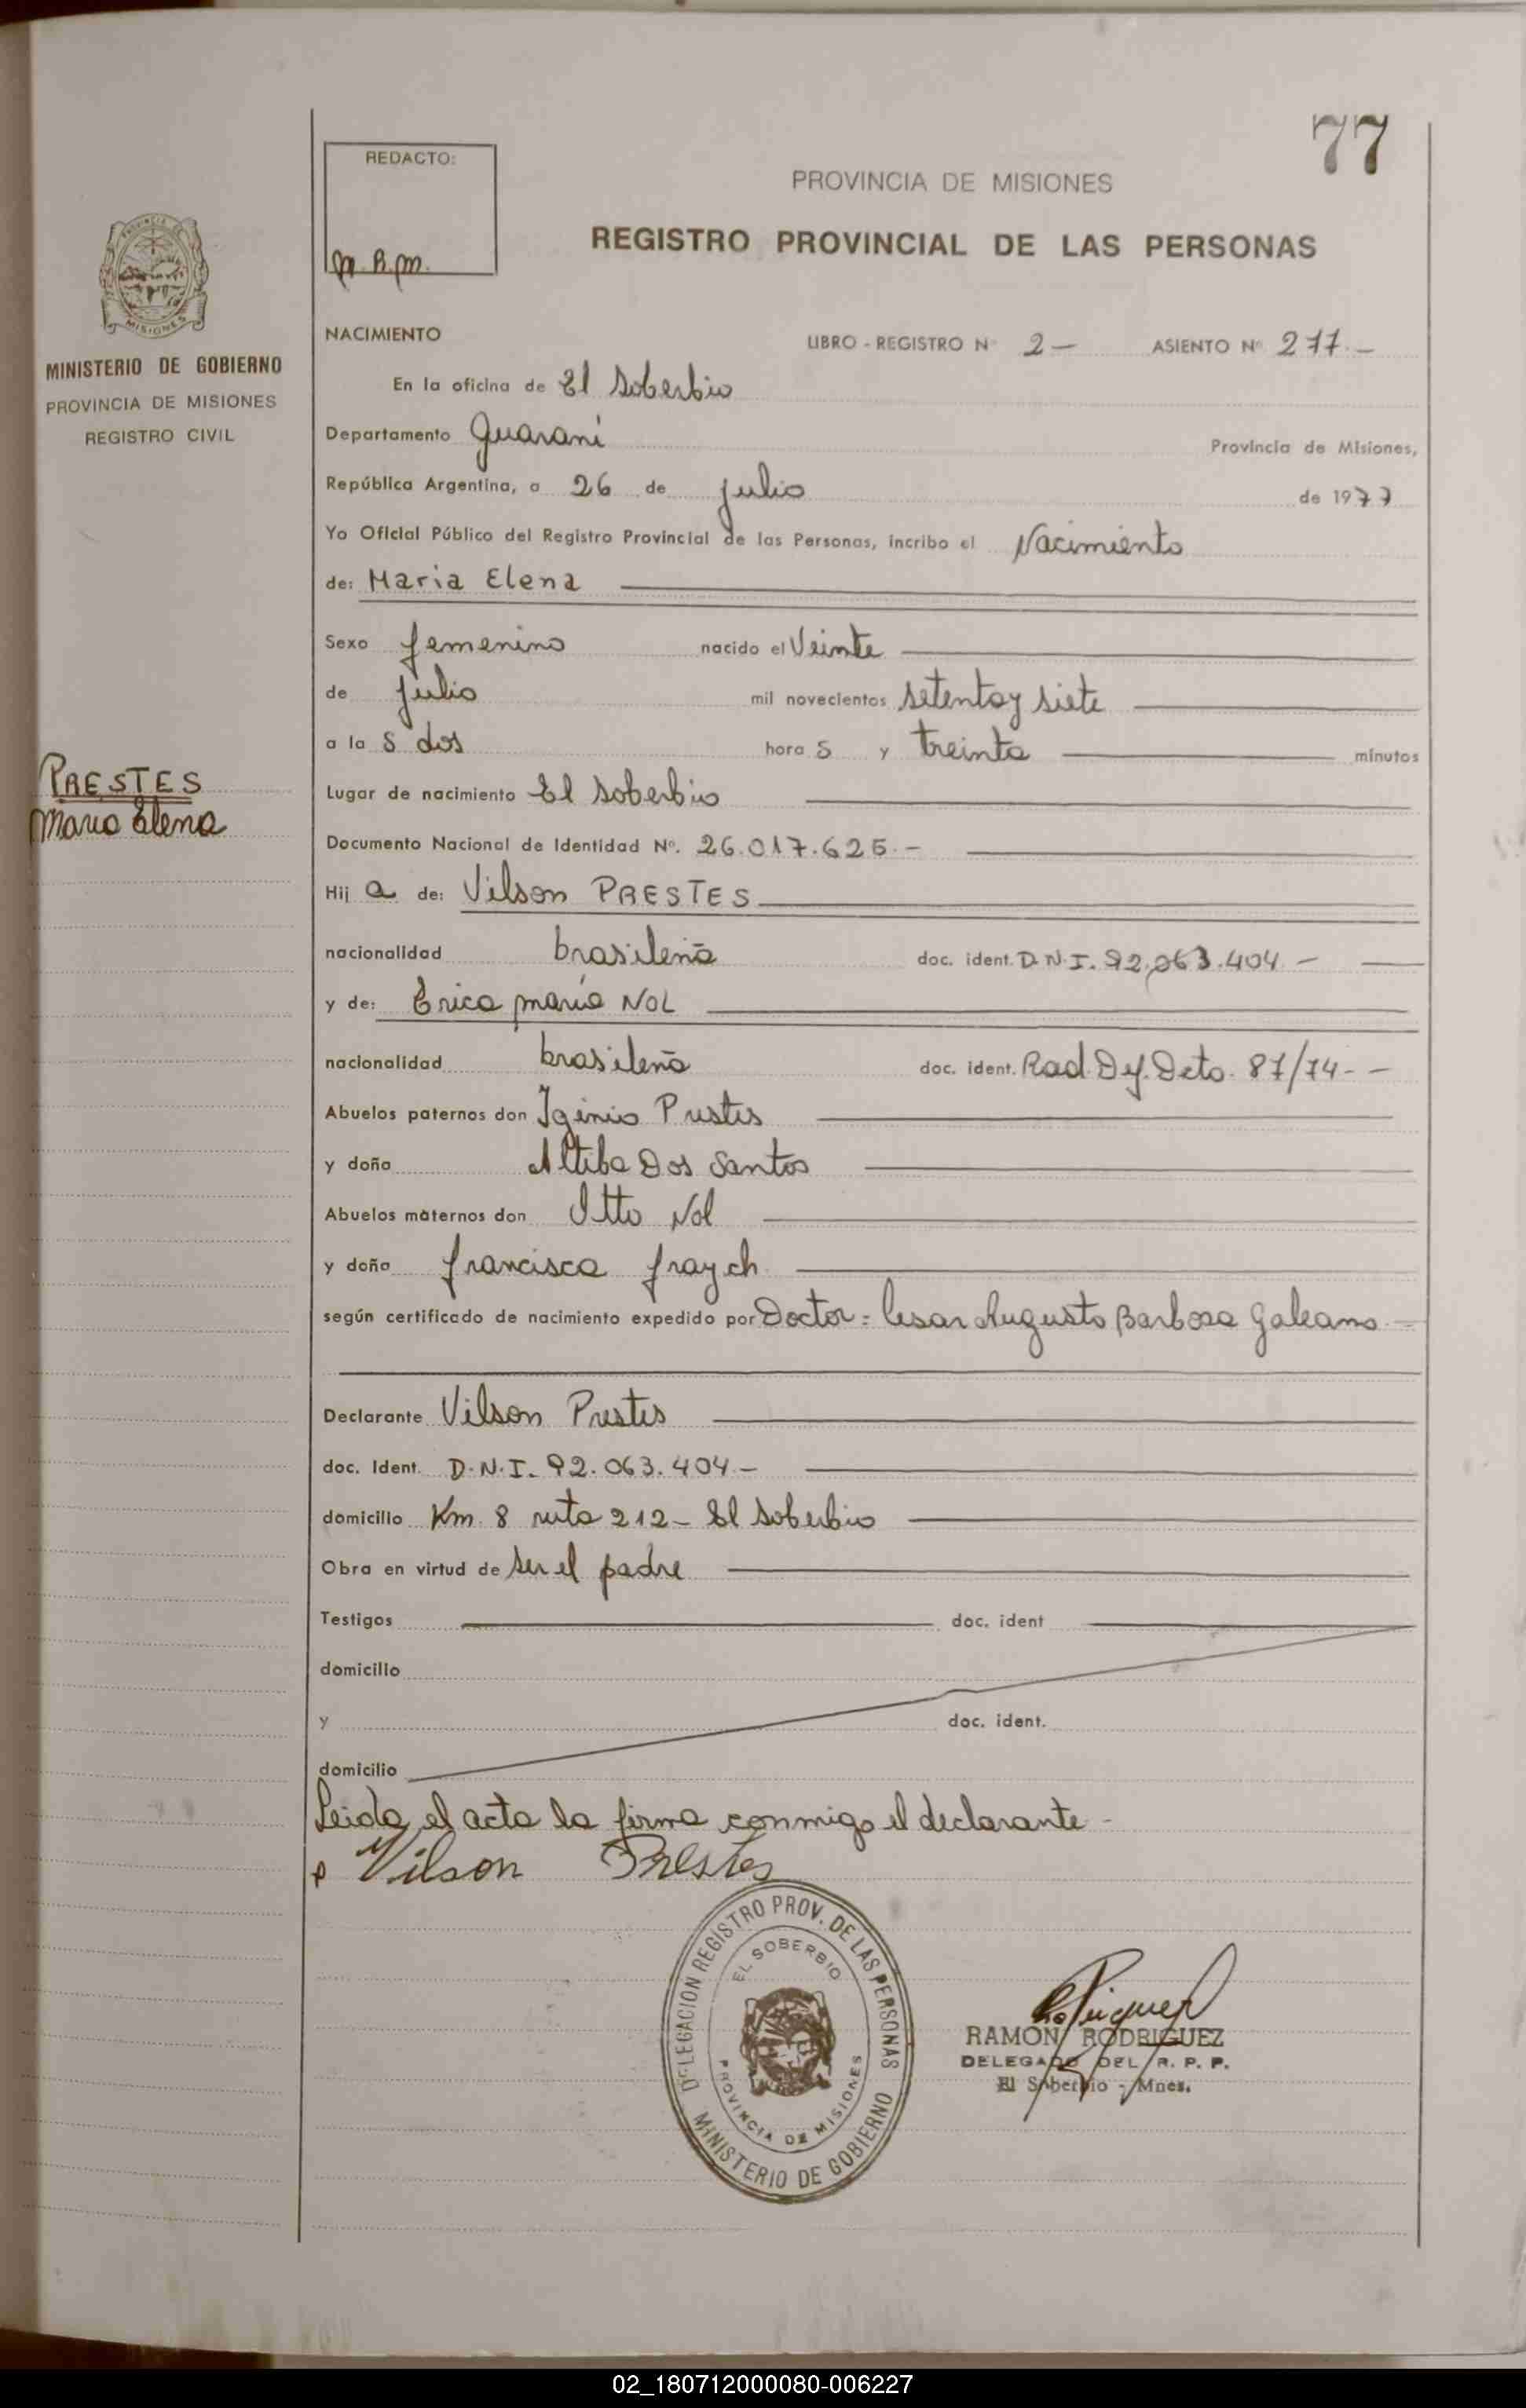 77
REDACTO:
M.R.M.
PROVINCIA DE MISIONES
REGISTRO PROVINCIAL DE LAS PERSONAS
PROVINCIA DE MISIONES
MINISTERIO DE GOBIERNO
PROVINCIA DE MISIONES
REGISTRO CIVIL
NACIMIENTO LIBRO - REGISTRO Nº 2- ASIENTO Nº 277.-
En la oficina de El Soberbio
Departamento Guarani Provincia de Misiones,
República Argentina, a 26 de julio de 1977
Yo Oficial Público del Registro Provincial de las Personas, incribo el Nacimiento
de: Maria Elena
Sexo femenino nacido el Veinte
de julio mil novecientos setenta y siete
a la s dos hora s y treinta minutos
PRESTES
Maria Elena
Lugar de nacimiento El Soberbio
Documento Nacional de Identidad Nº. 26.017.625.-
Hij a de: Vilson PRESTES
nacionalidad brasileña doc. ident. D.N.I. 92.063.404 -
y de: Erica maria NOL
nacionalidad brasileña doc. ident. Rad. Def. Dcto. 87/74--
Abuelos paternos don Iginio Prestes
y doña Altiba Dos Santos
Abuelos maternos don Otto Nol
y doña francisca fraych
según certificado de nacimiento expedido por Doctor: Cesar Augusto Barboza Galeano.-
Declarante Vilson Prestes
doc. Ident. D.N.I. 92.063.404-
domicilio Km. 8 ruta 212- El Soberbio
Obra en virtud de ser el padre
Testigos doc. ident
domicilio
y doc. ident.
domicilio
Leida el acta la firma conmigo el declarante-
Vilson Prestes
DELEGACION REGISTRO PROV. DE LAS PERSONAS
EL SOBERBIO
PROVINCIA DE MISIONES
MINISTERIO DE GOBIERNO
RAMON RODRIGUEZ
DELEGADO DEL R. P. P.
El Soberbio - Mnes.
02_180712000080-006227